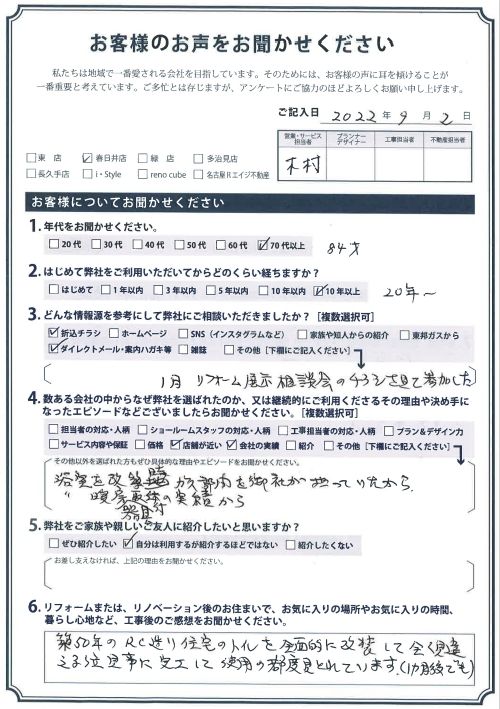 お客様のお声をお聞かせください
私たちは地域で一番愛される会社を目指しています。そのためには、お客様の声に耳を傾けることが
一番重要と考えています。ご多忙とは存じますが、アンケートにご協力のほどよろしくお願い申し上げます。
ご記入日 2022年9月2日
営業・サービス担当者 プランナーデザイナー 工事担当者 不動産担当者
木村
東店 春日井店 緑店 多治見店
長久手店 i・Style reno cube 名古屋Rエイジ不動産
お客様についてお聞かせください
1. 年代をお聞かせください。
20代 30代 40代 50代 60代 70代以上 84才
2. はじめて弊社をご利用いただいてからどのくらい経ちますか？
はじめて 1年以内 3年以内 5年以内 10年以内 10年以上 20年～
3. どんな情報源を参考にして弊社にご相談いただきましたか？［複数選択可］
折込チラシ ホームページ SNS（インスタグラムなど） 家族や知人からの紹介 東邦ガスから
ダイレクトメール・案内ハガキ等 雑誌 その他［下欄にご記入ください］
1月 リフォーム展示相談会のチラシを見て参加した
4. 数ある会社の中からなぜ弊社を選ばれたのか、又は継続的にご利用くださるその理由や決め手に
なったエピソードなどございましたらお聞かせください。［複数選択可］
担当者の対応・人柄 ショールームスタッフの対応・人柄 工事担当者の対応・人柄 プラン＆デザイン力
サービス内容や保証 価格 店舗が近い 会社の実績 紹介 その他［下欄にご記入ください］
その他以外を選ばれた方もぜひ具体的な理由やエピソードをお聞かせください。
浴室を改築 ガス部門を御社が担っていたから
〃 暖房 の実績から
5. 弊社をご家族や親しいご友人に紹介したいと思いますか？
ぜひ紹介したい 自分は利用するが紹介するほどではない 紹介したくない
お差し支えなければ、上記の理由をお聞かせください。
6. リフォームまたは、リノベーション後のお住まいで、お気に入りの場所やお気に入りの時間、
暮らし心地など、工事後のご感想をお聞かせください。
築50年のRC造り住宅のトイレを全面的に改装して全く見違
える位見事に完工して使用の都度見とれています。（1カ月後でも）